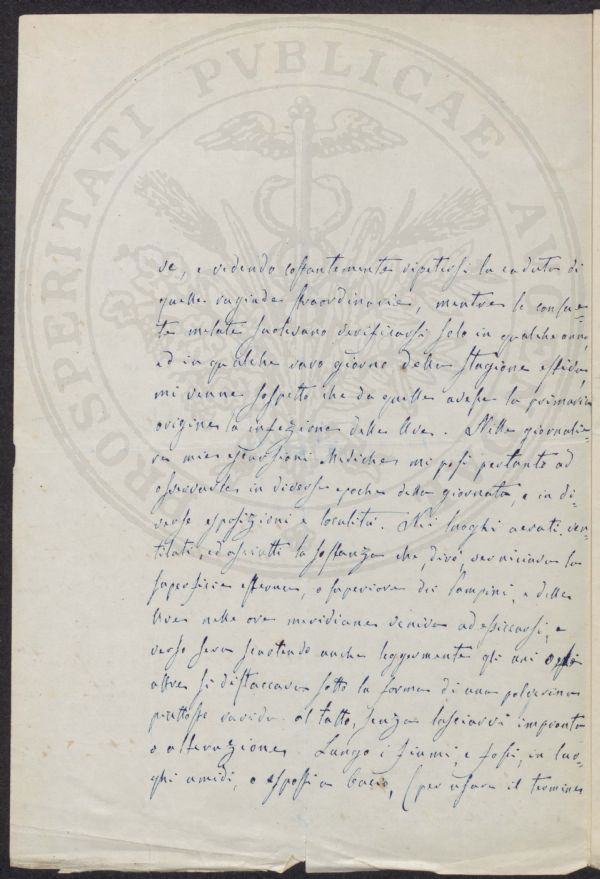 PROSPERITATI PVBLICAE AVGENDAE
ve, e vedendo costantemente ripetersi la caduta di
quelle rugiade straordinarie, mentre le consue-
te melate solevano verificarsi solo in qualche anno,
ed in qualche raro giorno della stagione estiva,
mi venne sospetto che da quelle avesse la primaria
origine la infezione delle Uve. Nelle giornalie-
re mie escursioni Mediche mi posi pertanto ad
osservarle in diverse epoche della giornata, e in di-
verse esposizioni e località. Nei luoghi aerati, ven-
tilati, ed asciutti la sostanza che, dirò, verniciava la
superficie esterna, o superiore dei Pampini, e delle
Uve nelle ore meridiane veniva ad essiccarsi, e
verso sera scuotendo anche leggermente gli uni
altre si distaccava sotto la forma di una polverina
piuttosto ruvida al tatto, senza lasciarvi impronta
o alterazione. Lungo i fiumi, e fossi, in luo-
ghi umidi, o esposti a Bacìo, (per usare il termine